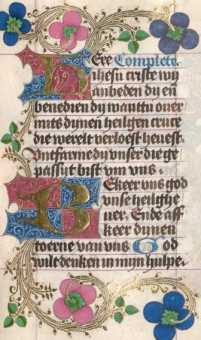 Here Complete.
Ihesu criste wy
anbeden dy en
benedien dy want tu over
mits dynen heilgen cruce
die werelt verloest hevest.
Ontfarme dy unser die ge
passyt bist um uns.
Bekeer uns god
unse heilghe
ner. Ende aff
keer dynen
toerne van uns God
wilt denken in myn hulpe.